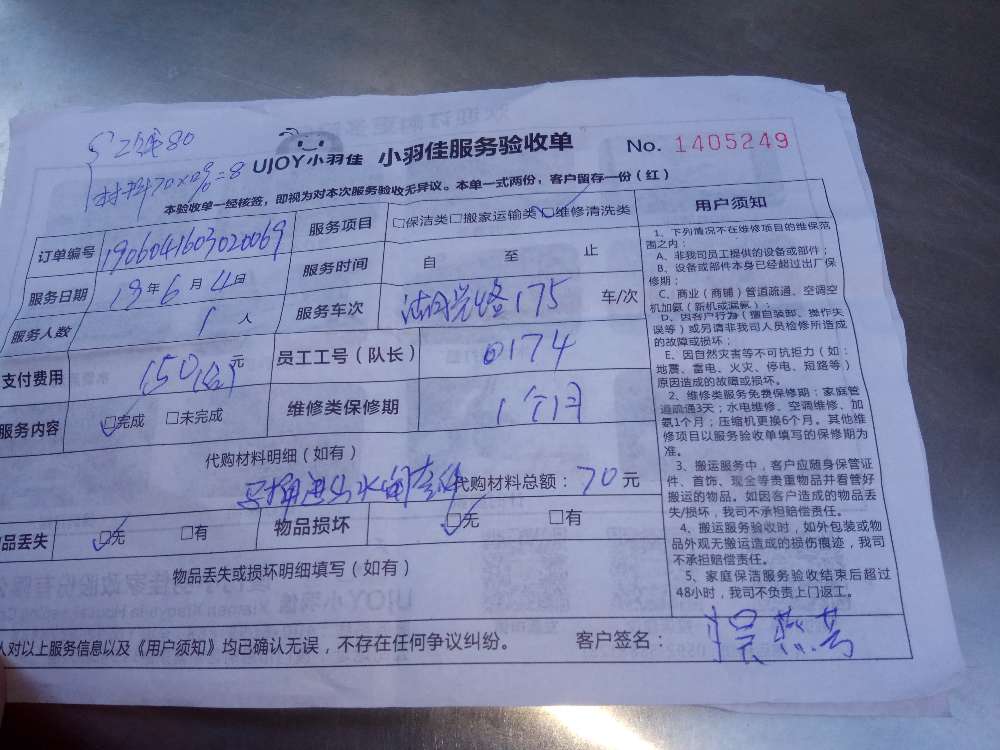 工钱80
材料70×10%=8
UJOY小羽佳 小羽佳服务验收单 No. 1405249
本验收单一经核签，即视为对本次服务验收无异议。本单一式两份，客户留存一份（红）
订单编号 1906041603020069 服务项目 □保洁类□搬家运输类□维修清洗类
服务日期 19年6月4日 服务时间 自 至 止
服务人数 1人 服务车次 175 车/次
支付费用 150 元 员工工号（队长） 0174
服务内容 □完成 □未完成 维修类保修期 1个月
代购材料明细（如有）
马桶进水 代购材料总额：70元
品丢失 □无 □有 物品损坏 □无 □有
物品丢失或损坏明细填写（如有）
人对以上服务信息以及《用户须知》均已确认无误，不存在任何争议纠纷。 客户签名：
用户须知
1、下列情况不在维修项目的维保范
围之内：
A、非我司员工提供的设备或部件；
B、设备或部件本身已经超过出厂保
修期；
C、商业（商铺）管道疏通、空调空
机加氨（新机或漏氨）；
D、因客户行为（擅自装卸、操作失
误等）或另请非我司人员检修所造成
的故障或损坏；
E、因自然灾害等不可抗拒力（如：
地震、雷电、火灾、停电、短路等）
原因造成的故障或损坏。
2、维修类服务免费保修期：家庭管
道疏通3天；水电维修、空调维修、加
氨1个月；压缩机更换6个月。其他维
修项目以服务验收单填写的保修期为
准。
3、搬运服务中，客户应随身保管证
件、首饰、现金等贵重物品并看管好
搬运的物品。如因客户造成的物品丢
失/损坏，我司不承担赔偿责任。
4、搬运服务验收时，如外包装或物
品外观无搬运造成的损伤痕迹，我司
不承担赔偿责任。
5、家庭保洁服务验收结束后超过
48小时，我司不负责上门返工。